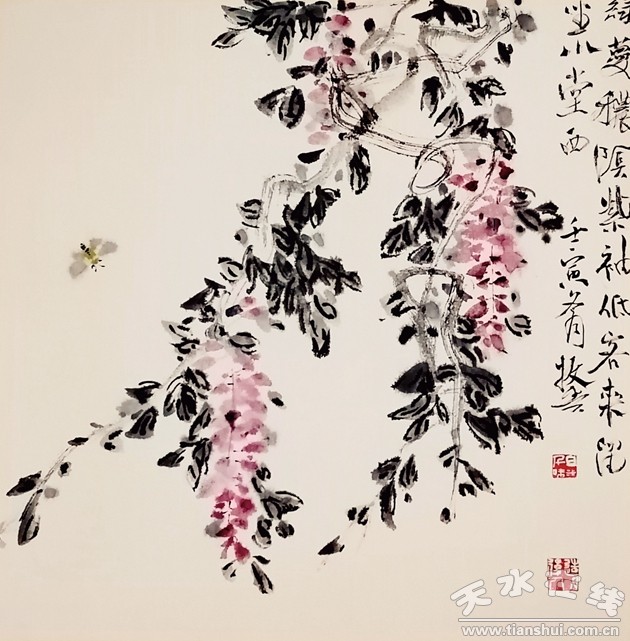 绿蔓穠陰紫袖低客来留
坐小堂西
壬寅冬月
天水在线
www.tianshui.com.cn